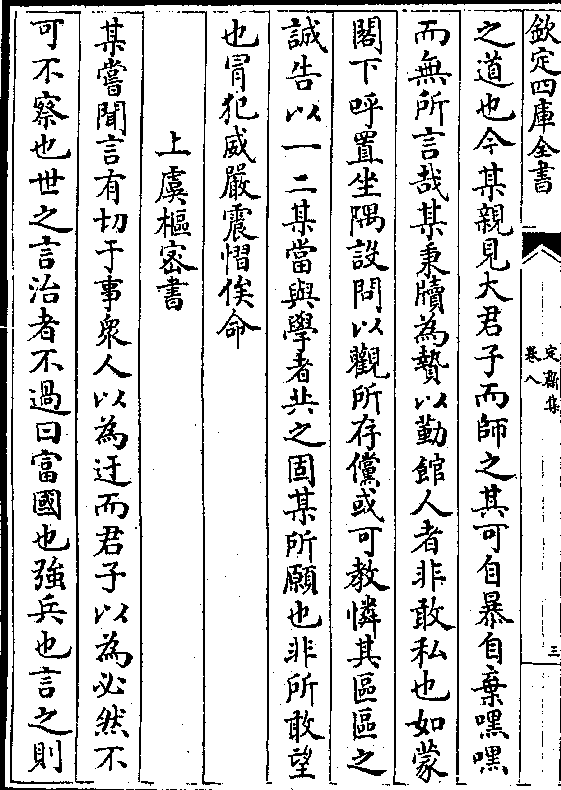 欽定四庫全書
定齋集
卷八
三
之道也今某親見大君子而師之其可自暴自棄嘿嘿
而無所言哉某秉牘為贄以勤館人者非敢私也如蒙
閣下呼置坐隅設問以觀所存儻或可教憐其區區之
誠告以一二某當與學者共之固某所願也非所敢望
也冐犯威嚴震慴俟命
上虞樞宻書
某嘗聞言有切于事衆人以為迂而君子以為必然不
可不察也世之言治者不過曰富國也強兵也言之則